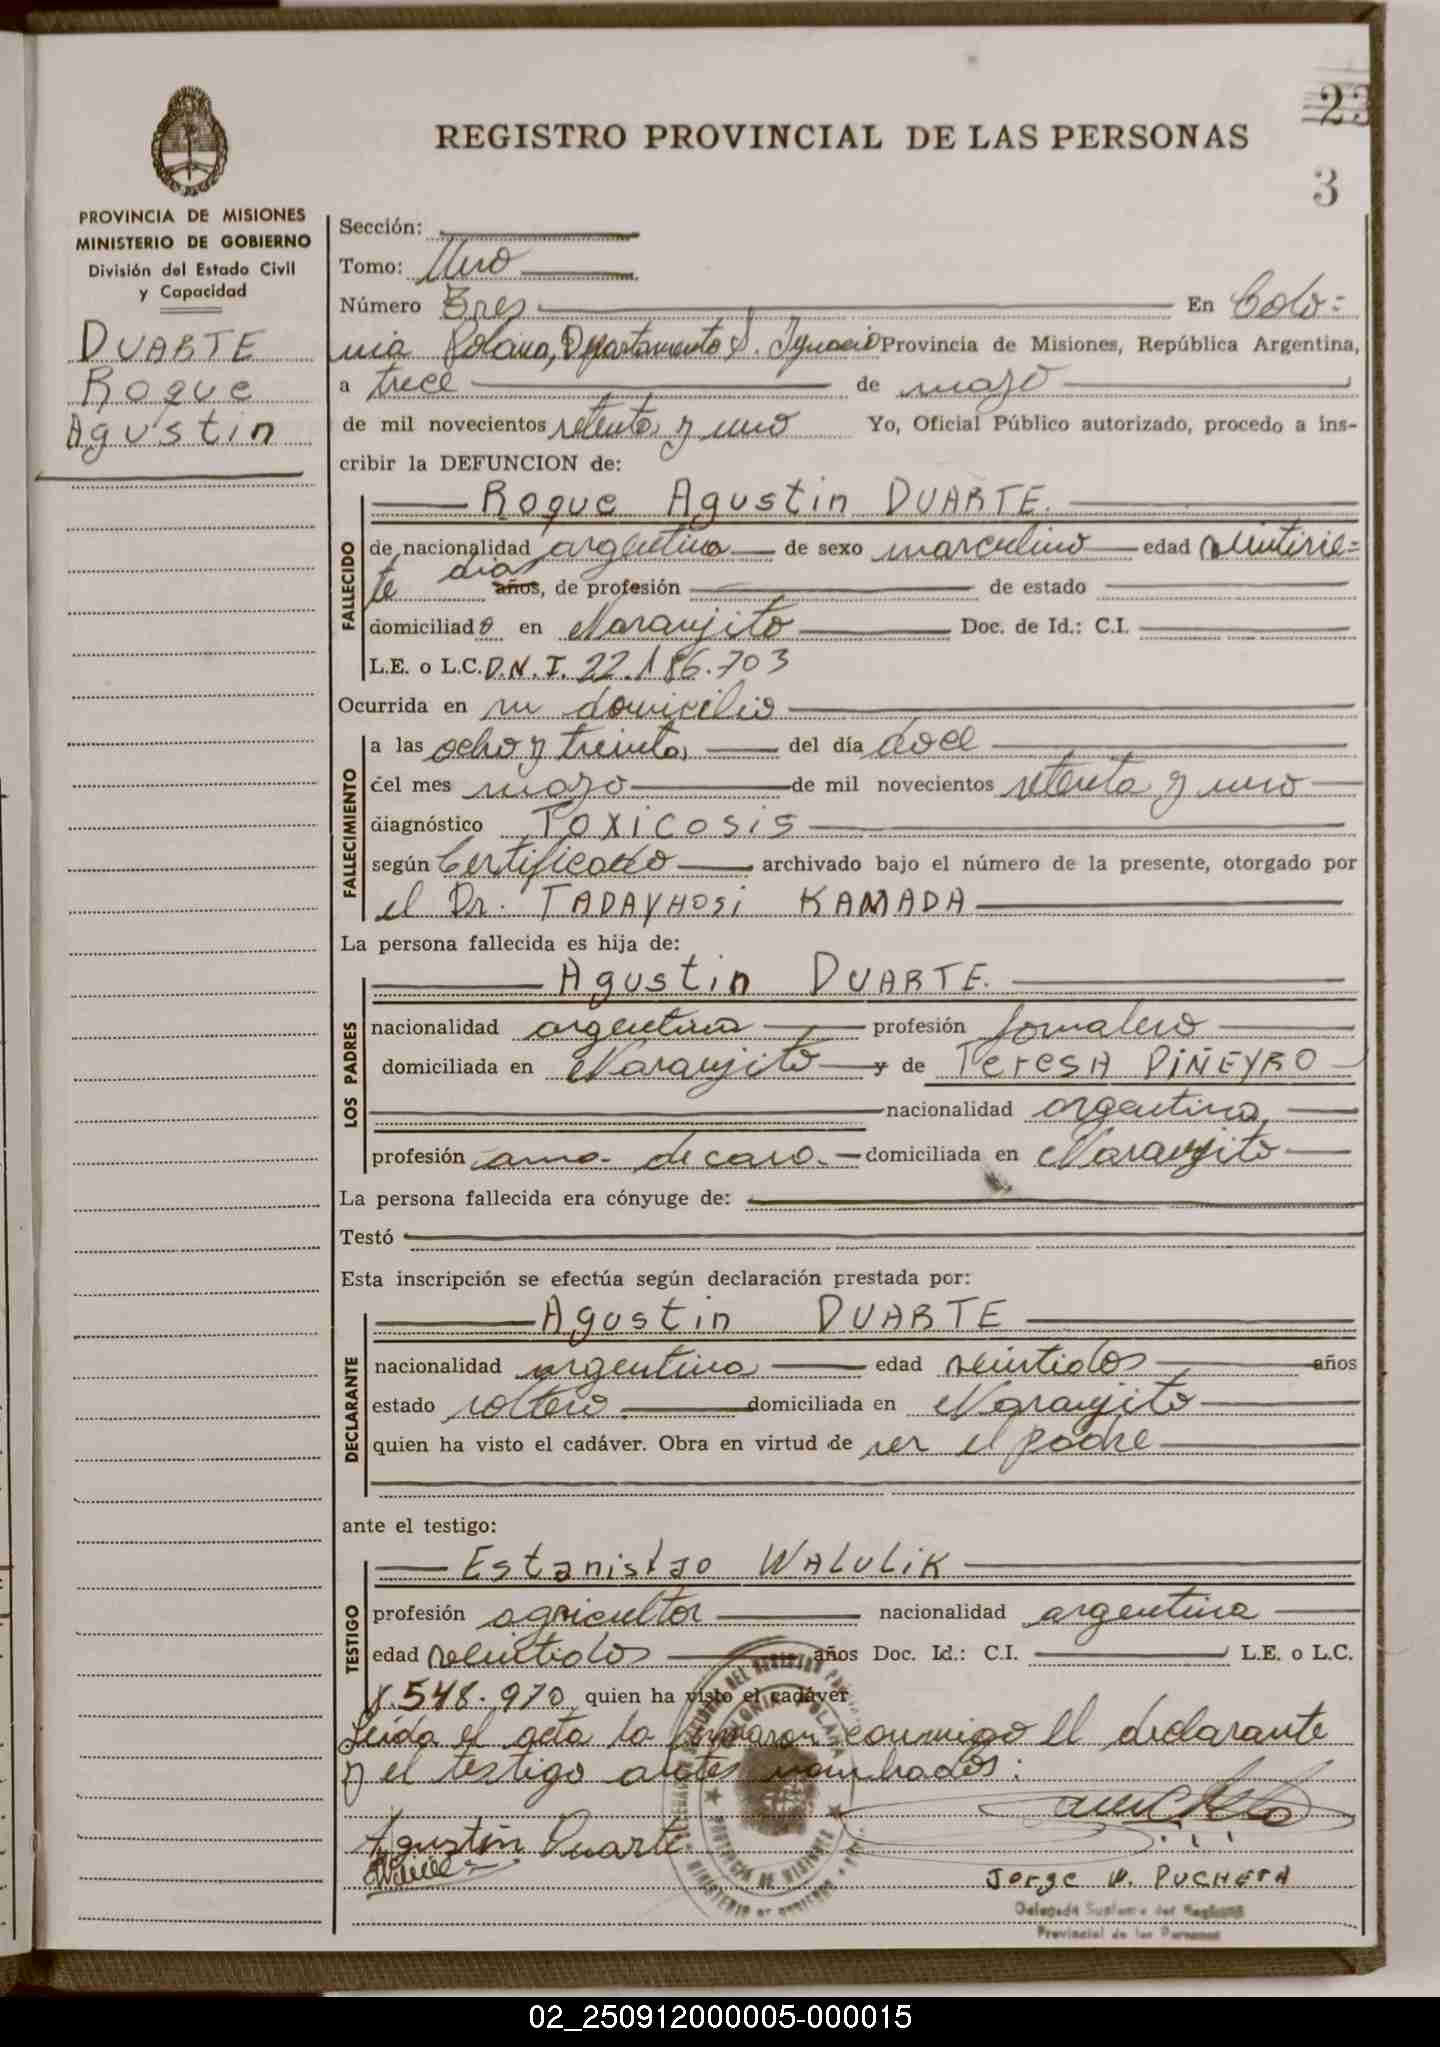 23
REGISTRO PROVINCIAL DE LAS PERSONAS
3
PROVINCIA DE MISIONES
MINISTERIO DE GOBIERNO
División del Estado Civil
y Capacidad
DUARTE
Roque
Agustin
Sección:
Tomo: Uno
Número Tres En Colo=
nia Polana, Departamento S. Ignacio Provincia de Misiones, República Argentina,
a trece de mayo
de mil novecientos setenta y uno Yo, Oficial Público autorizado, procedo a ins-
cribir la DEFUNCION de:
Roque Agustin DUARTE.
FALLECIDO
de nacionalidad argentina de sexo masculino edad veintisie=
te dias años, de profesión de estado
domiciliado en Naranjito Doc. de Id.: C.I.
L.E. o L.C. D.N.I. 22.186.703
Ocurrida en su domicilio
FALLECIMIENTO
a las ocho y treinta, del día doce
del mes mayo de mil novecientos setenta y uno
diagnóstico TOXICOSIS
según Certificado archivado bajo el número de la presente, otorgado por
el Dr. TADAYHOSI KAMADA
La persona fallecida es hija de:
Agustin DUARTE.
LOS PADRES
nacionalidad argentina profesión Jornalero
domiciliada en Naranjito y de TeresA PIÑEYRO
nacionalidad argentina,
profesión ama de casa. domiciliada en Naranjito
La persona fallecida era cónyuge de:
Testó
Esta inscripción se efectúa según declaración prestada por:
Agustin DUARTE
DECLARANTE
nacionalidad argentina edad veintidos años
estado soltero. domiciliada en Naranjito
quien ha visto el cadáver. Obra en virtud de ser el padre
ante el testigo:
Estanislao WALULIK
TESTIGO
profesión agricultor nacionalidad argentina
edad veintidos años Doc. Id.: C.I. L.E. o L.C.
8.548.970 quien ha visto el cadáver
Leida el acta la firmaron conmigo el declarante
y el testigo antes nombrados:
Agustin Duarte
Jorge PUCHETA
Delegado Suplente del Registro
Provincial de las Personas
COLONIA POLANA
PROVINCIA DE MISIONES
02_250912000005-000015